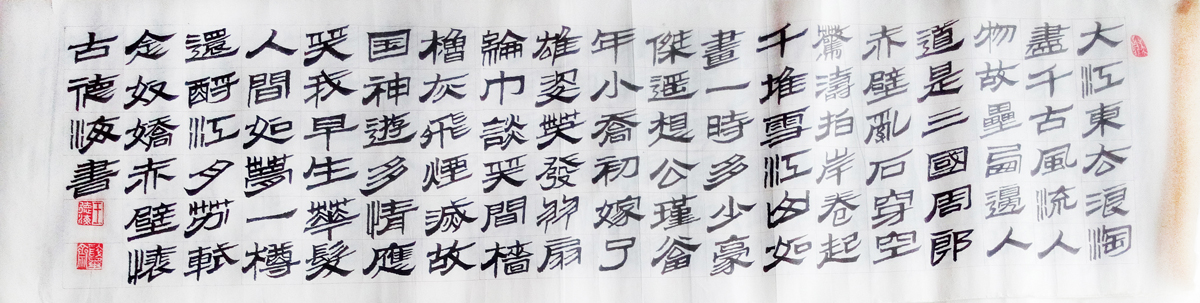 大江東去浪淘
盡千古風流人
物故壘西邊人
道是三國周郎
赤壁亂石穿空
驚濤拍岸卷起
千堆雪江山如
畫一時多少豪
傑遥想公瑾當
年小喬初嫁了
雄姿英發羽扇
綸巾談笑間檣
櫓灰飛煙滅故
国神遊多情應
笑我早生華髮
人間如夢一樽
還酹江月苏軾
念奴嬌赤壁懷
古德海書